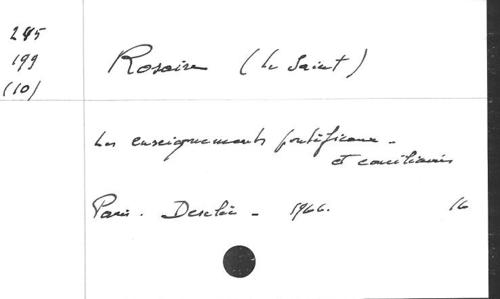 245
199
(10)
Rosaire (le Saint)
Les enseignements pontificaux -
et conciliaires
Paris. Desclée - 1966. 16